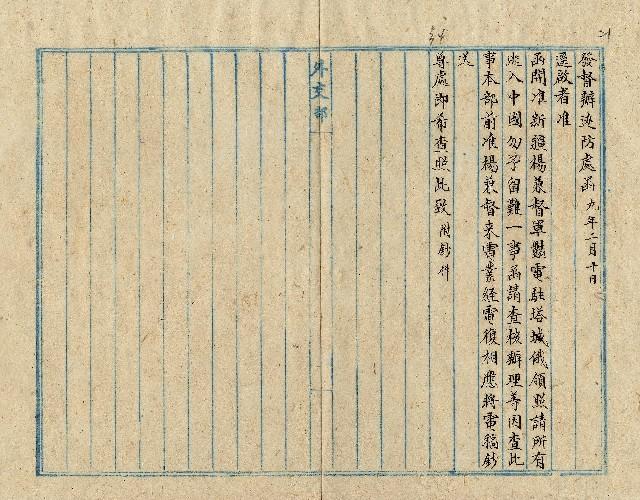 21
34
發督辦邊防處函 九年二月十日
逕啟者准
函開准新疆楊兼督軍豔電駐塔城俄領照請所有
逃入中國勿予留難一事函請查核辦理等因查此
事本部前准楊兼督來電業經電復相應將電稿鈔
送
尊處即希查照此致 附鈔件
外交部